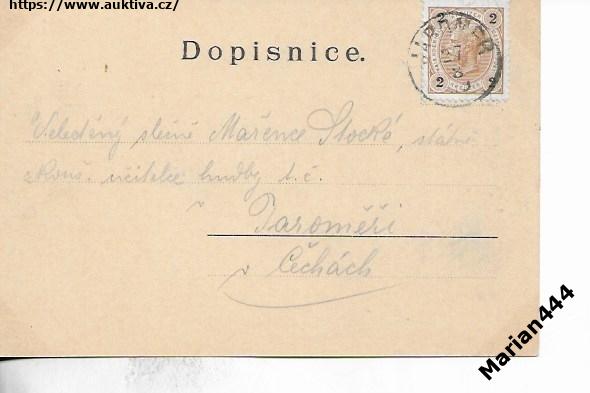 https://www.auktiva.cz/
Dopisnice.
2 2
2 2
JAROMĚŘ
Velectěný slečně Mařence Stocké, státně
zkouš. učitelce hudby t.č.
v
Jaroměři
v Čechách
Marian444